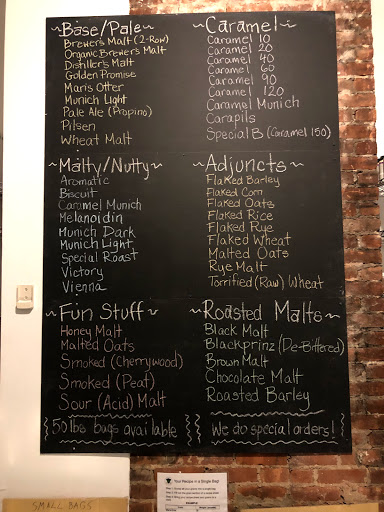 ~Base/Pale~
Brewer's Malt (2-Row)
Organic Brewer's Malt
Distiller's Malt
Golden Promise
Maris Otter
Munich Light
Pale Ale (Propino)
Pilsen
Wheat Malt
~Caramel~
Caramel 10
Caramel 20
Caramel 40
Caramel 60
Caramel 90
Caramel 120
Caramel Munich
Carapils
Special B (Caramel 150)
~Malty/Nutty~
Aromatic
Biscuit
Caramel Munich
Melanoidin
Munich Dark
Munich Light
Special Roast
Victory
Vienna
~Adjuncts~
Flaked Barley
Flaked Corn
Flaked Oats
Flaked Rice
Flaked Rye
Flaked Wheat
Malted Oats
Rye Malt
Torrified (Raw) Wheat
~Fun Stuff~
Honey Malt
Malted Oats
Smoked (Cherrywood)
Smoked (Peat)
Sour (Acid) Malt
50 lbs bags available
~Roasted Malts~
Black Malt
Blackprinz (De-Bittered)
Brown Malt
Chocolate Malt
Roasted Barley
We do special orders!
Your Recipe in a Single Bag!
SMALL BAGS